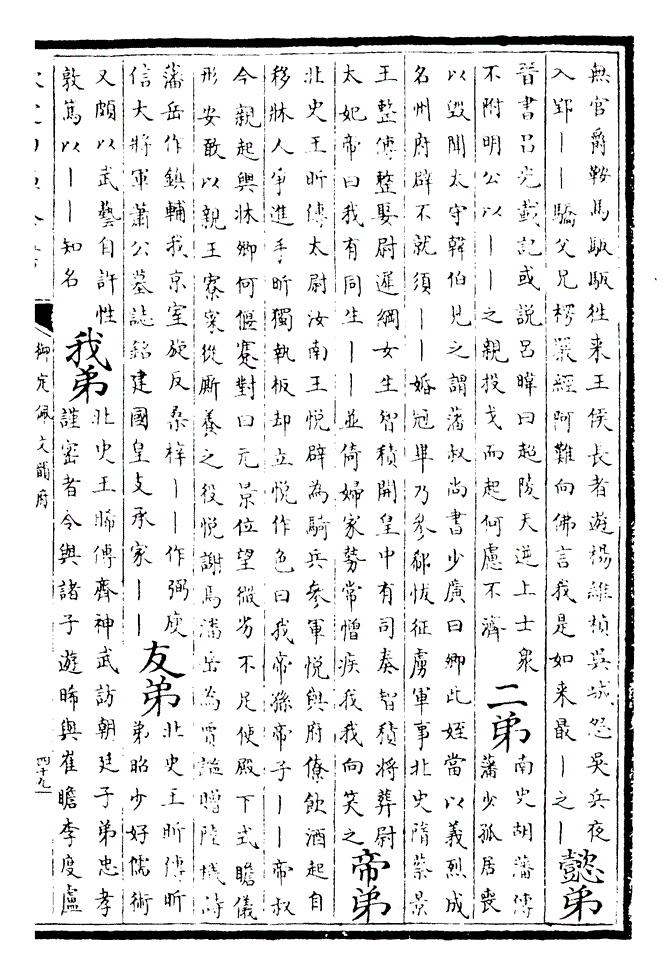 無官爵鞍馬馺馺徃来王侯長者遊楊維楨吳城怨吳兵夜
入郢丨丨驕父兄楞嚴經阿難向佛言我是如来最丨之丨
懿弟
晉書呂光載記或說呂暐曰超陵天逆上士衆
不附明公以丨丨之親投戈而起何慮不濟
二弟
南史胡藩傳
藩少孤居喪
以毀聞太守韓伯見之謂藩叔尚書少廣曰卿此姪當以義烈成
名州府辟不就須丨丨婚冠畢乃參郗恢征虜軍事北史隋蔡景
王整傳整娶尉遲綱女生智積開皇中有司奏智積將葬尉
太妃帝曰我有同生丨丨並倚婦家勢常憎疾我我向笑之
帝弟
北史王昕傳太尉汝南王悅辟為騎兵參軍悅與府僚飲酒起自
移牀人爭進手昕獨執板却立悅作色曰我帝孫帝子丨丨帝叔
今親起輿牀卿何偃蹇對曰元景位望微劣不足使殿下式瞻儀
形安敢以親王寮寀從厮養之役悅謝焉潘岳為賈謐贈陸機詩
藩岳作鎮輔我京室旋反桑梓丨丨作弼庾
信大將軍蕭公墓誌銘建國皇支承家丨丨
友弟
北史王昕傳昕
弟昭少好儒術
又頗以武藝自許性
敦篤以丨丨知名
我弟
北史王晞傳齊神武訪朝廷子弟忠孝
謹密者令與諸子遊晞與崔瞻李度盧
御定佩文韻府
四十九